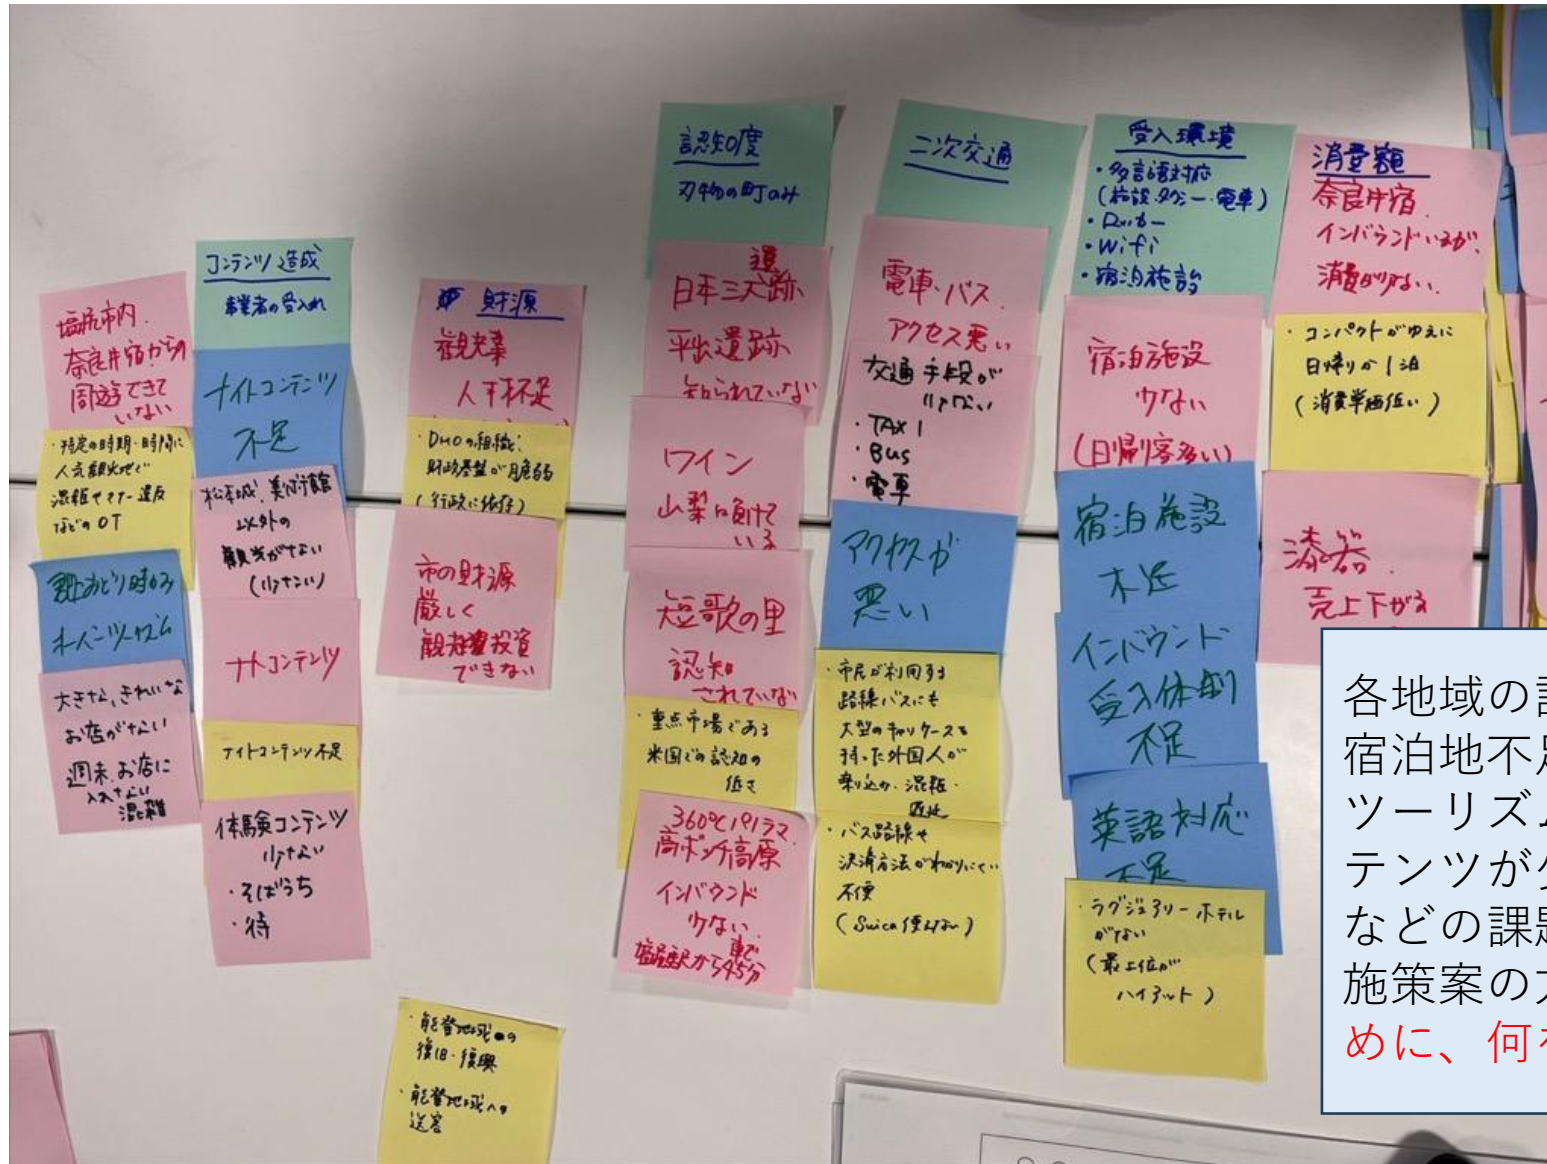 塩尻市内.
奈良井宿からの
周遊できて
いない
・特定の時期・時間に
人気観光地で
混雑やマナー違反
などのOT
郡上おどり時のみ
オーバーツーリズム
大きな、きれいな
お店がない
週末、お店に
入れない
混雑
コンテンツ造成
事業者の受入れ
ナイトコンテンツ
不足
松本城、美術館
以外の
観光がない
(少ない)
ナイトコンテンツ
ナイトコンテンツ不足
体験コンテンツ
少ない
・そばうち
・侍
財源
観光業
人手不足
・DMOの組織、
財政基盤が脆弱
(行政に依存)
市の財源
厳しく
観光投資
できない
・能登地域の
復旧・復興
・能登地域への
送客
認知度
刃物の町のみ
日本三大遺跡
平出遺跡
知られていない
ワイン
山梨に負けて
いる
短歌の里
認知
されていない
・重点市場である
米国での認知の
低さ
360℃パノラマ
高ボッチ高原
インバウンド
少ない.
塩尻駅から車で45分
二次交通
電車、バス
アクセス悪い
交通手段が
少ない
・TAXI
・Bus
・電車
アクセスが
悪い
・市民が利用する
路線バスにも
大型のキャリーケースを
持った外国人が
乗り込み、混雑・
遅延
・バス路線や
決済方法がわかりにくい
不便
(Suica使えない)
受入環境
・多言語対応
(施設、タクシー・電車)
・ロッカー
・Wifi
・宿泊施設
宿泊施設
少ない
(日帰客多い)
宿泊施設
不足
インバウンド
受入体制
不足
英語対応
不足
・ラグジュアリーホテル
がない
(最上位が
ハイアット)
消費額
奈良井宿.
インバウンドいるが、
消費が少ない.
・コンパクトがゆえに
日帰りか1泊
(消費単価低い)
漆器.
売上下がる
各地域の
宿泊地不足
ツーリズム
テンツが
などの課題
施策案の
めに、何を